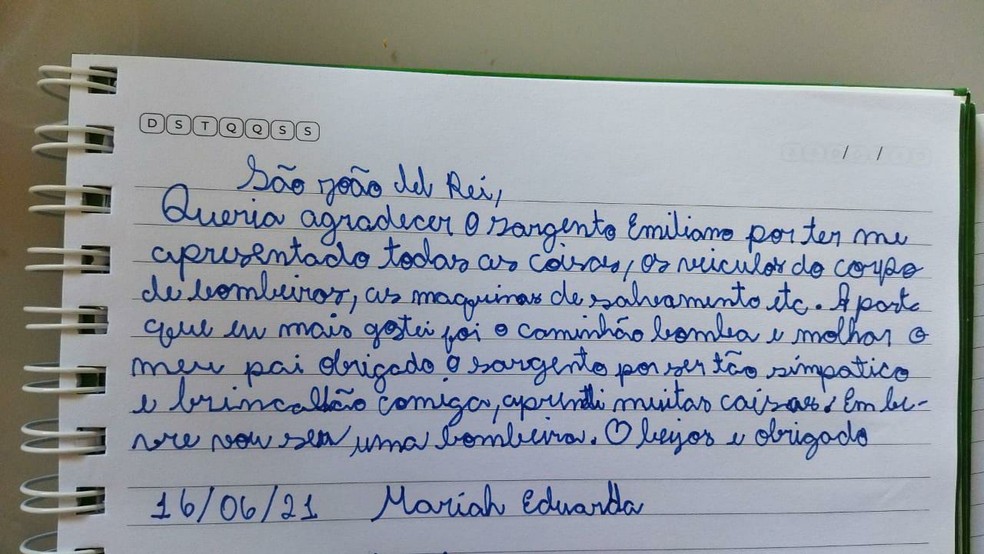 D S T Q Q S S
/ /
São João del Rei,
Queria agradecer o sargento Emiliano por ter me
apresentado todas as coisas, os veiculos do corpo
de bombeiros, as maquinas de salvamento etc. A parte
que eu mais gostei foi o caminhão bomba e molhar o
meu pai obrigado o sargento por ser tão simpatico
e brincalhão comiga, aprendi muitas coisas. Em bre-
vre vou ser uma bombeira. ♡ beijos e obrigado
16/06/21 Mariah Eduarda